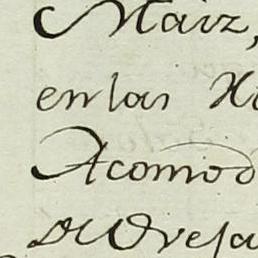 Maiz,
en las
Acomod
de Oveja